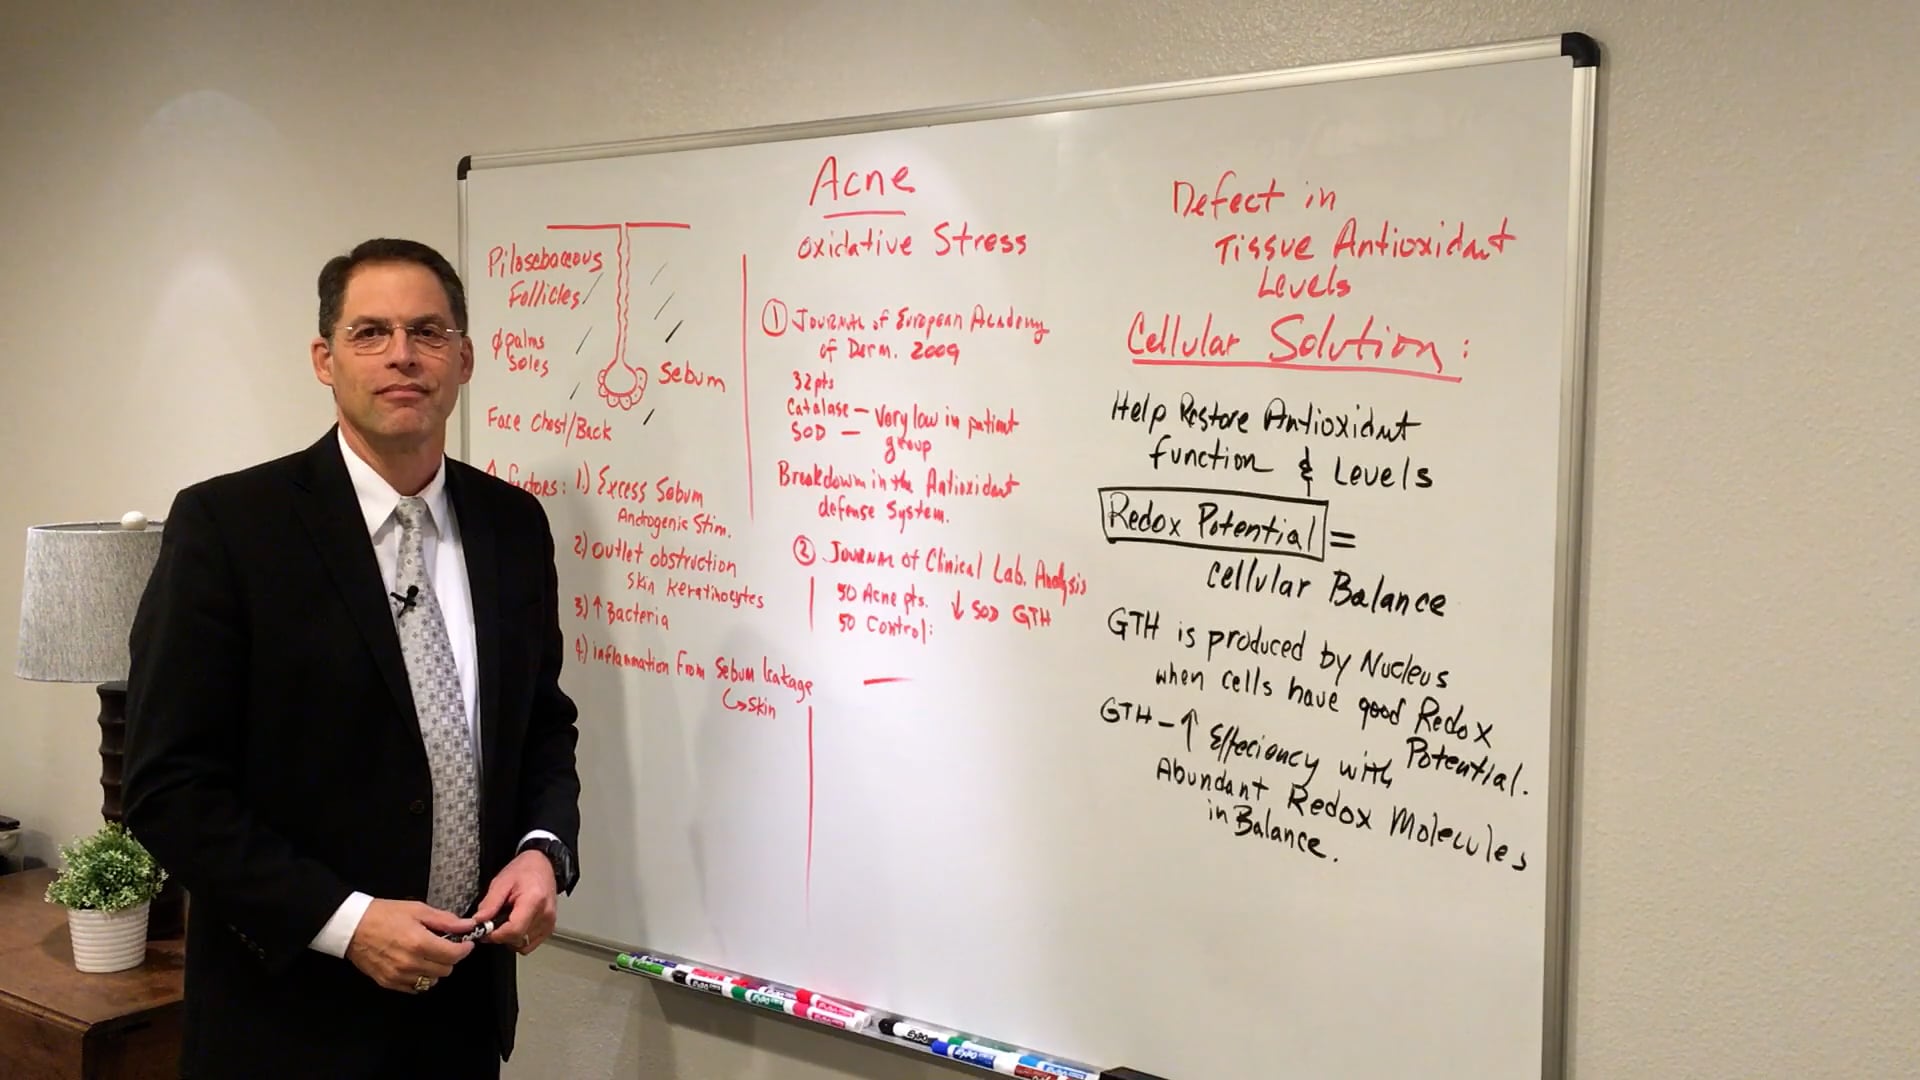 Acne
Oxidative Stress
Pilosebaceous
Follicles
∅ palms
soles
Sebum
Face Chest/Back
1.) Excess Sebum
Androgenic Stim.
2) Outlet obstruction
Skin Keratinocytes
3) ↑ Bacteria
4) inflammation From Sebum leakage
↳ Skin
① Journal of European Academy
of Derm. 2009
32 pts
Catalase – Very low in patient
SOD – group
Breakdown in the Antioxidant
defense System.
② Journal of Clinical Lab. Analysis
50 Acne pts. ↓ SOD GTH
50 Control:
Defect in
Tissue Antioxidant
Levels
Cellular Solution:
Help Restore Antioxidant
function & Levels
Redox Potential =
Cellular Balance
GTH is produced by Nucleus
when cells have good Redox
Potential.
GTH – ↑ Effeciency with
Abundant Redox Molecules
in Balance.
EXPO
EXPO
EXPO
EXPO